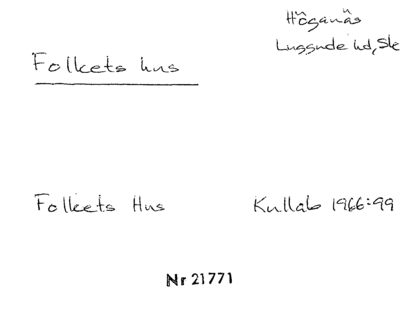 Höganäs
Luggude hd, Sk
Folkets hus
Folkets Hus Kullab 1966:99
Nr 21771